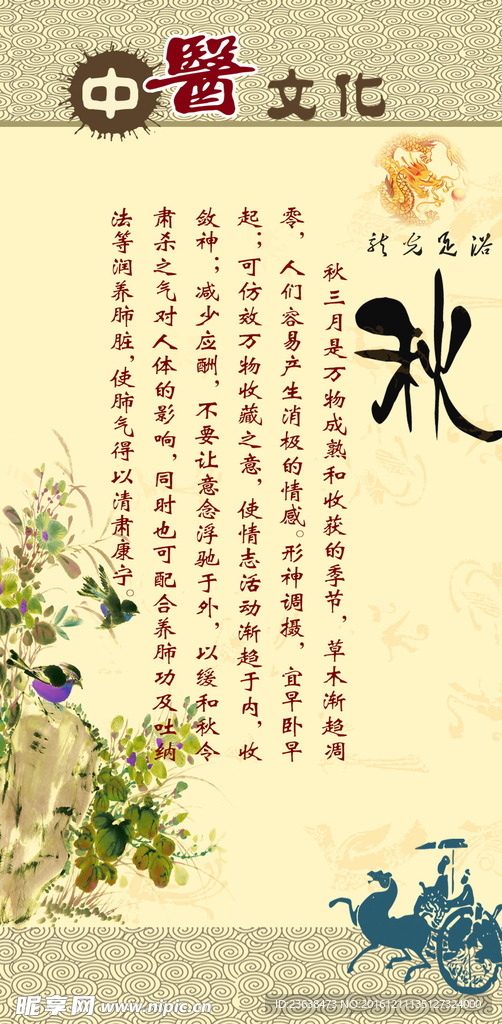 中醫文化
龙光足浴
秋
秋三月是万物成熟和收获的季节，草木渐趋凋
零，人们容易产生消极的情感。形神调摄，宜早卧早
起；可仿效万物收藏之意，使情志活动渐趋于内，收
敛神；减少应酬，不要让意念浮驰于外，以缓和秋令
肃杀之气对人体的影响，同时也可配合养肺功及吐纳
法等润养肺脏，使肺气得以清肃康宁。
昵享网 www.nipic.cn
ID:23638473 NO:20161211135127324000